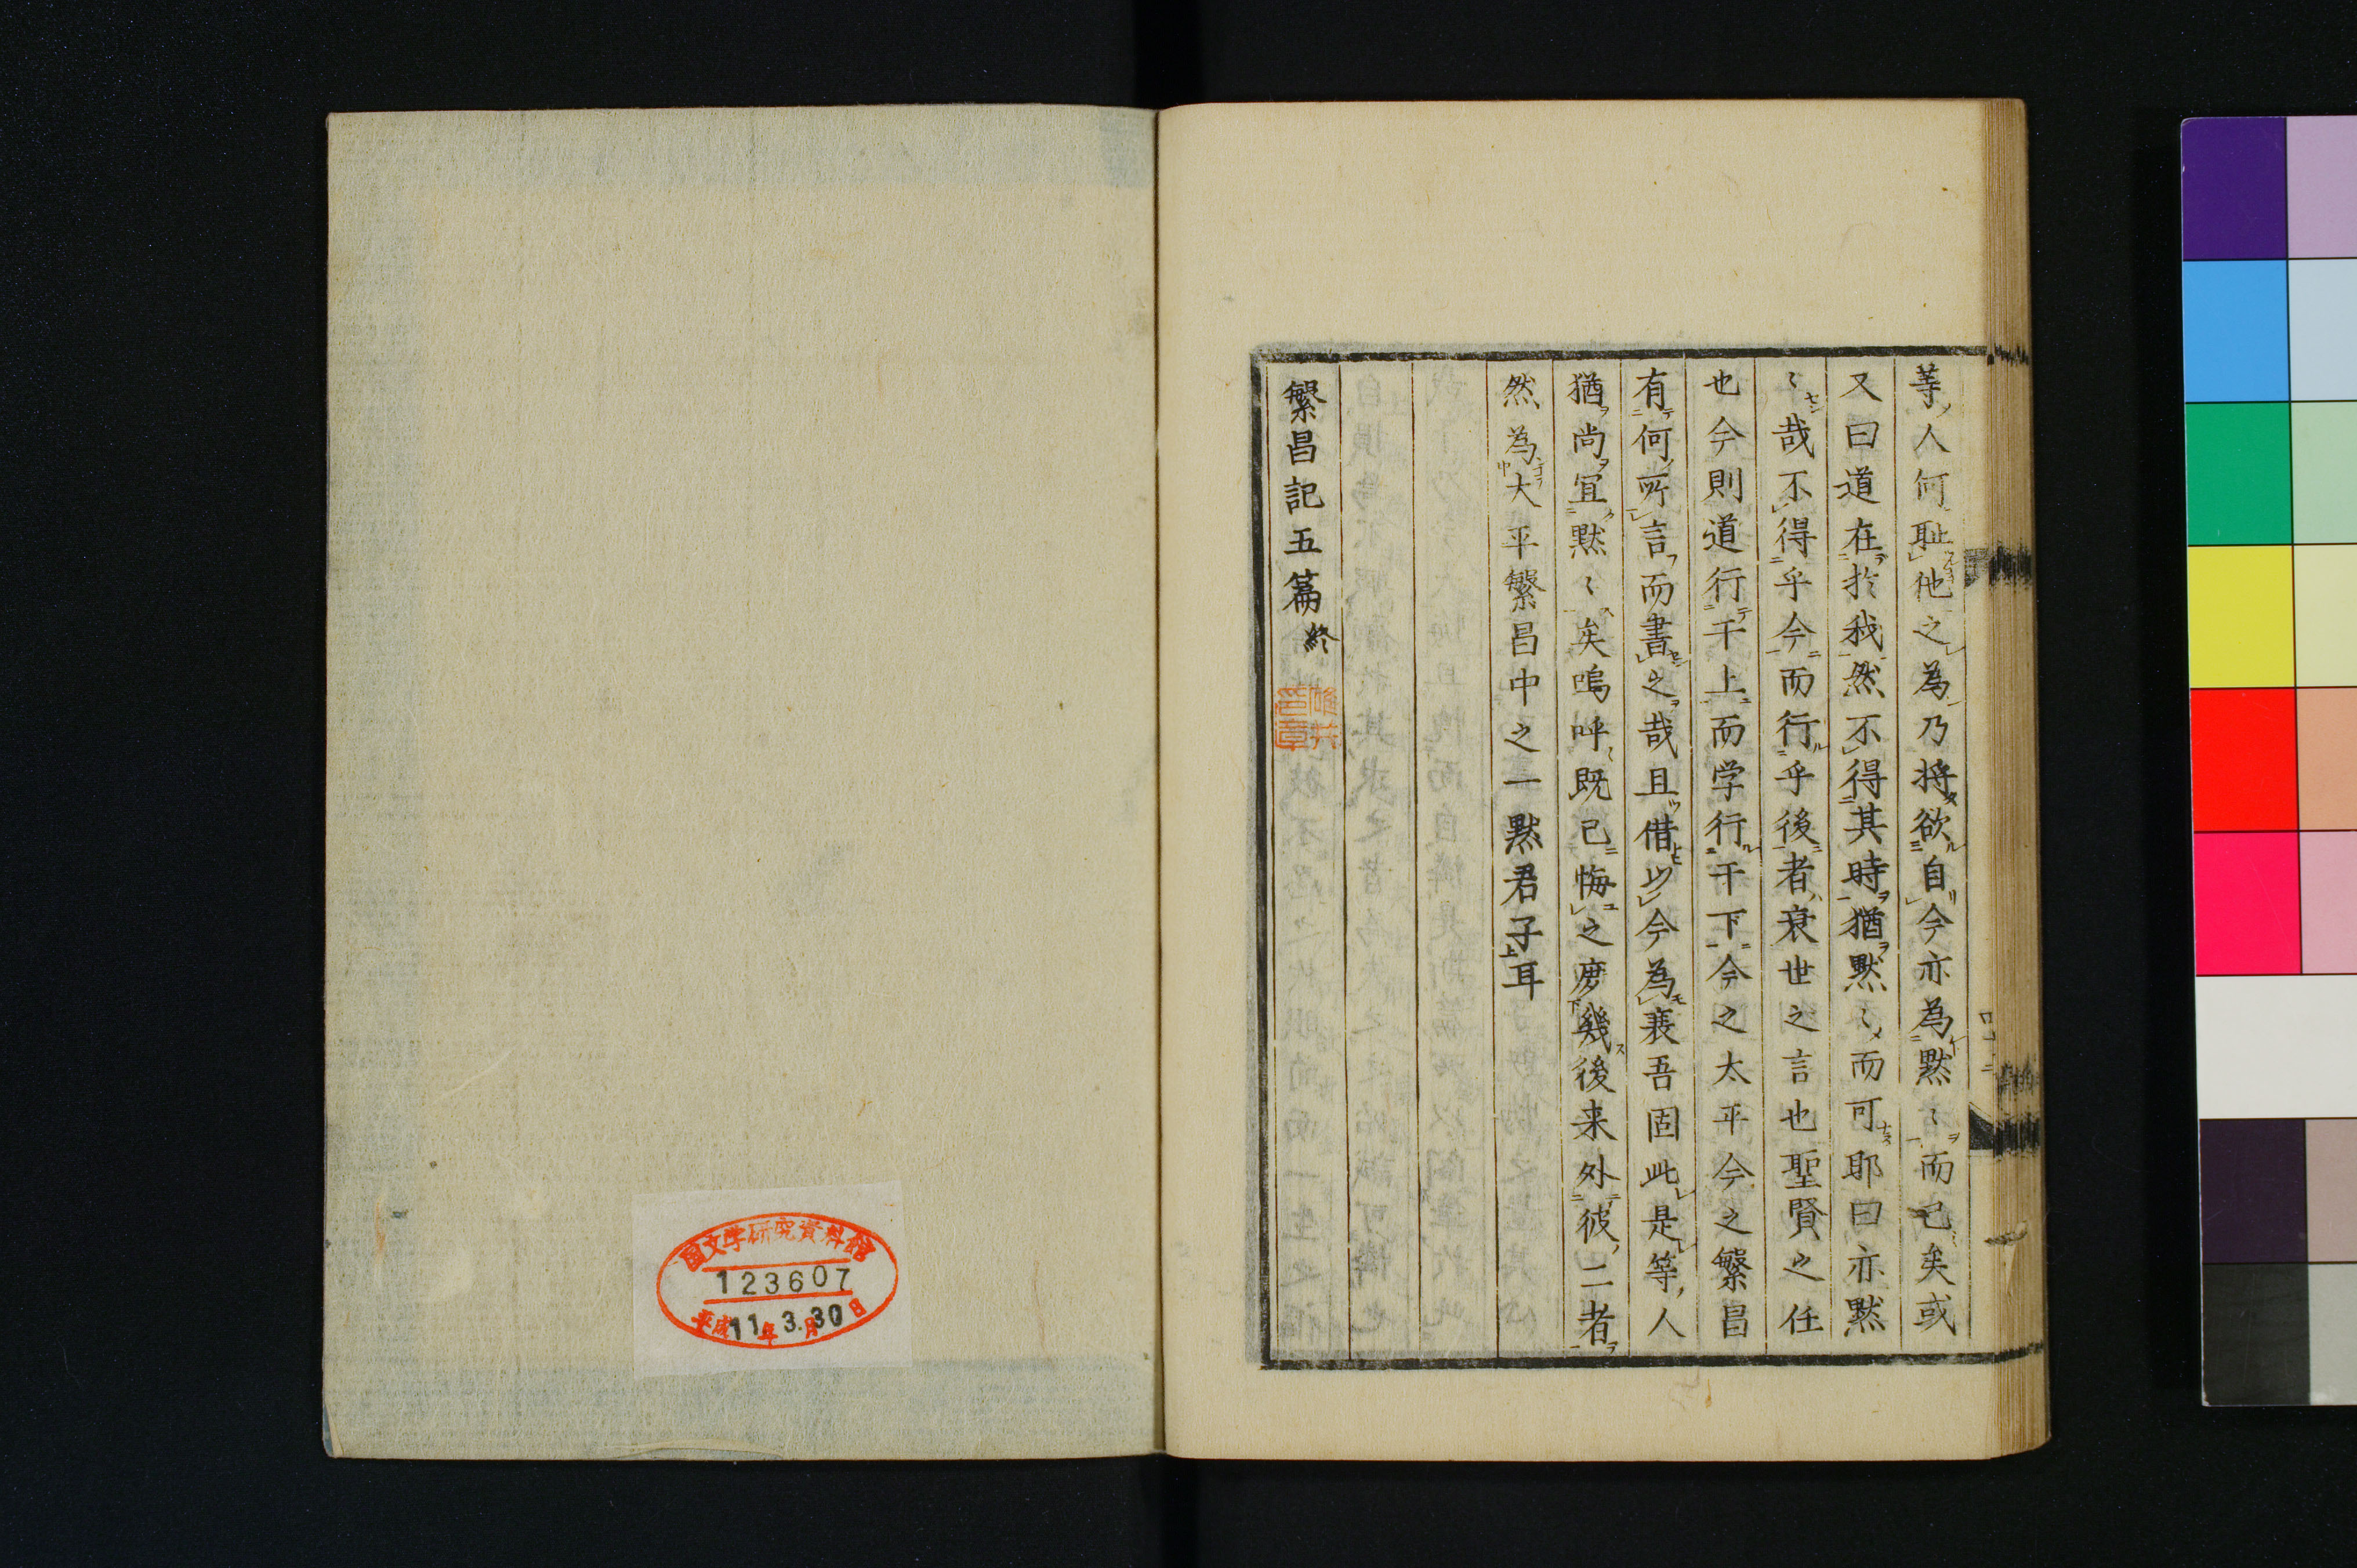 等人何耻他之為乃将欲自今亦為黙〻而已矣或
又曰道在於我然不得其時猶黙〻而可耶曰亦黙
〻哉不得乎今而行乎後者衰世之言也聖賢之任
也今則道行干上而学行干下今之太平今之繁昌
有何所言而書之哉且借少今為襄吾固此是等人
猶尚宜黙〻矣嗚呼既已悔之庶幾後来外彼二者
然為大平繁昌中之一黙君子耳
繁昌記五篇終
四十二
国文学研究資料館
123607
平成11年3.月30日